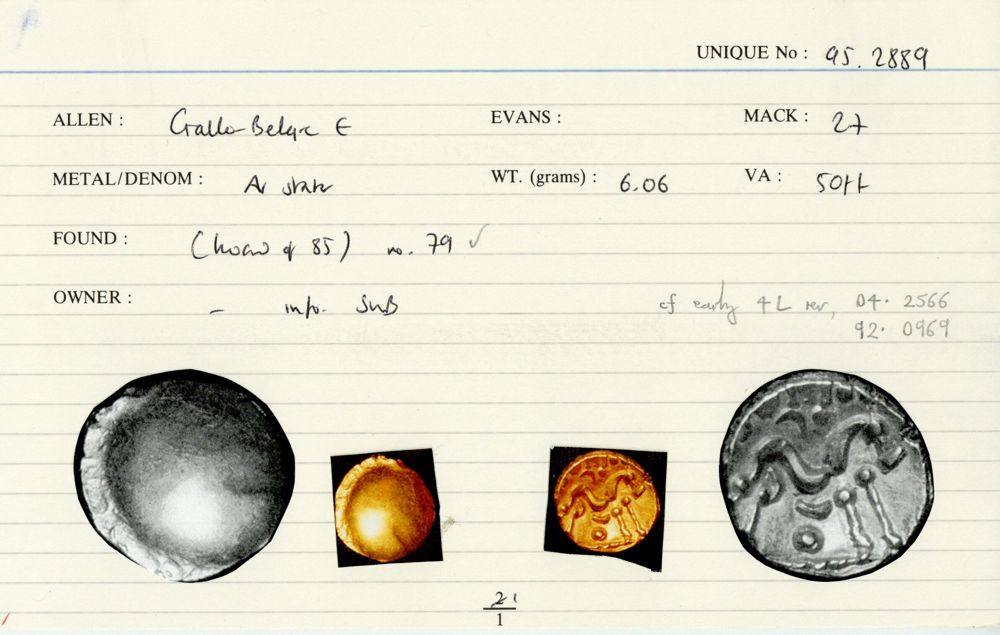 UNIQUE No : 95. 2889
ALLEN : Gallo-Belgic E EVANS : MACK : 27
METAL/DENOM : AV stater WT. (grams) : 6.06 VA :
FOUND : (hoard of 85) no. 79 ✓
OWNER : – info. SWB
cf early 4L rev, 04. 2566
92. 0969
21
1